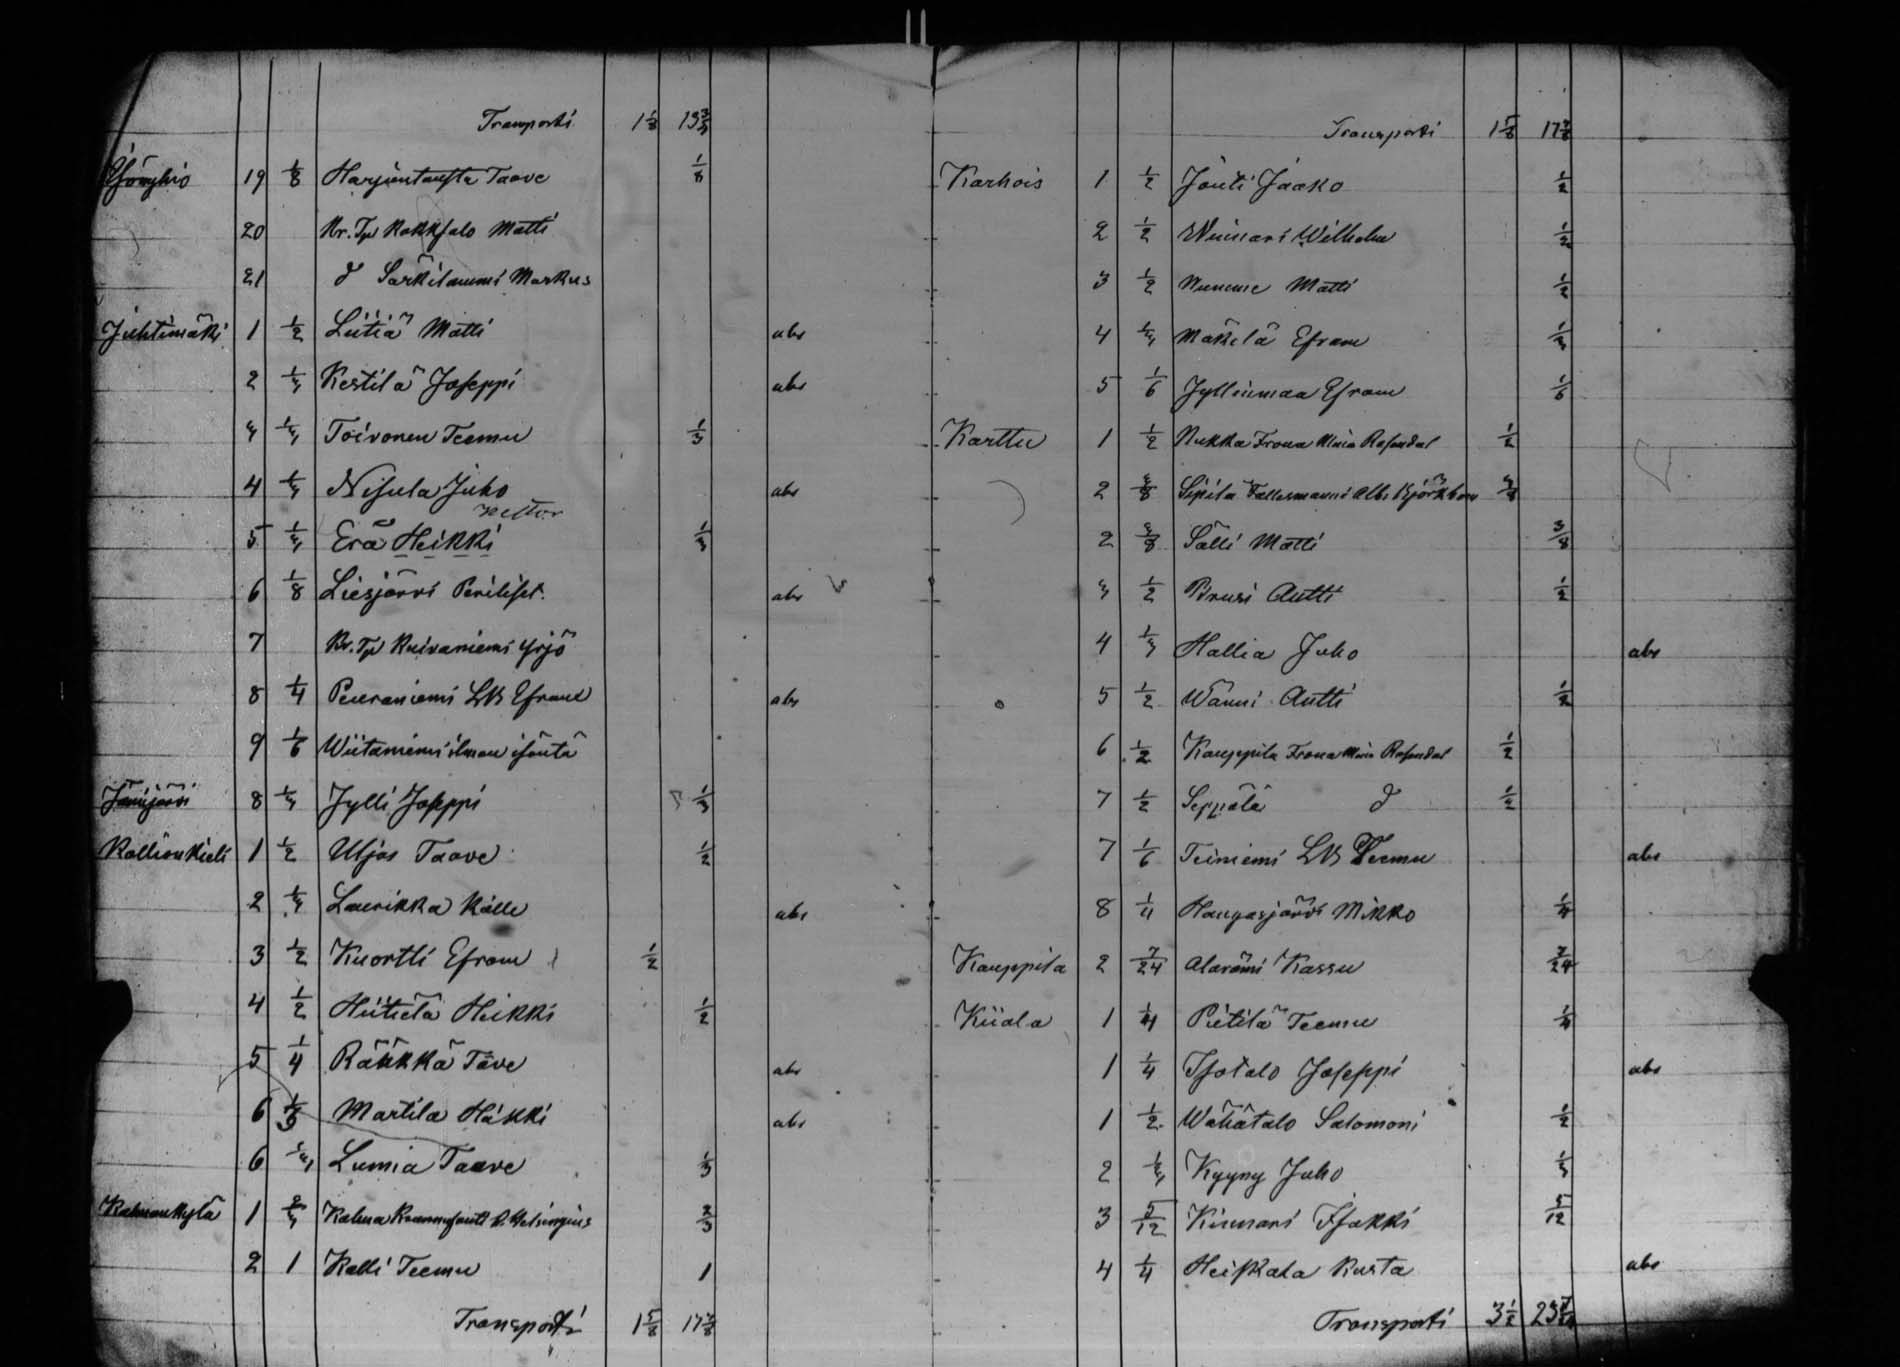 Transporti 1 1/8 13 3/4
19 1/8 Harjuntausta Taave 1/8
20 Kr. Tp Kokksalo Matti
21 d Särkilammi Markus
Juhtimäki 1 1/2 Liitiä Matti abs
2 1/3 Kestilä Joseppi abs
3 1/3 Toivonen Teemu 1/3
4 1/3 Nisula Juho abs
5 1/3 Erä Heikki 1/3
6 1/8 Liesjärvi Perilliset. abs
7 Kr. Tp Kuivaniemi Yrjö
8 1/4 Peuraniemi LW Efraim abs
9 1/6 Wiitaniemi ilman isäntä
Jämijärvi 8 1/3 Jylli Joseppi 1/3
Kallionkieli 1 1/2 Uljas Taave 1/2
2 1/3 Laurikka Kalle abs
3 1/2 Kuortti Efram 1/2
4 1/2 Hiitelä Heikki 1/2
5 1/4 Räkkkä Tave abs
6 1/3 Martila Häkki abs
6 1/3 Lumia Taave 1/3
Kalmankylä 1 2/3 Kalma 2/3
2 1 Kalli Teemu 1
Transporti 1 5/8 17 7/8
Transporti 1 5/8 17 7/8
Karhois 1 1/2 Jänti Jaako 1/2
2 1/2 Winnari Wilhelm 1/2
3 1/2 Numme Matti 1/2
4 1/3 Mäkelä Efram 1/3
5 1/6 Jyllinmaa Efram 1/6
Karttu 1 1/2 Nukka Frona Minia Rosendal 1/2
2 3/8 Sipilä Fallesmanni Alb. Björkbom
2 3/8 Sälli Matti 3/8
3 1/2 Prusi Antti 1/2
4 1/3 Hallia Juho abs
5 1/2 Wänni Antti 1/2
6 1/2 Kauppila Frona Minia Rosendal 1/2
7 1/2 Seppälä d 1/2
7 1/6 Teiniemi LW Teemu abs
8 1/4 Hangasjärvi Mikko 1/4
Kauppila 2 7/24 Alarämi Kassu 7/24
Kiiala 1 1/4 Pietilä Teemu 1/4
1 1/4 Isotalo Joseppi abs
1 1/2 Wähätalo Salomoni 1/2
2 1/3 Kyyny Juho 1/3
3 5/12 Kinnari Isakki 5/12
4 1/4 Heiskala Kusta abs
Transporti 3 1/2 23